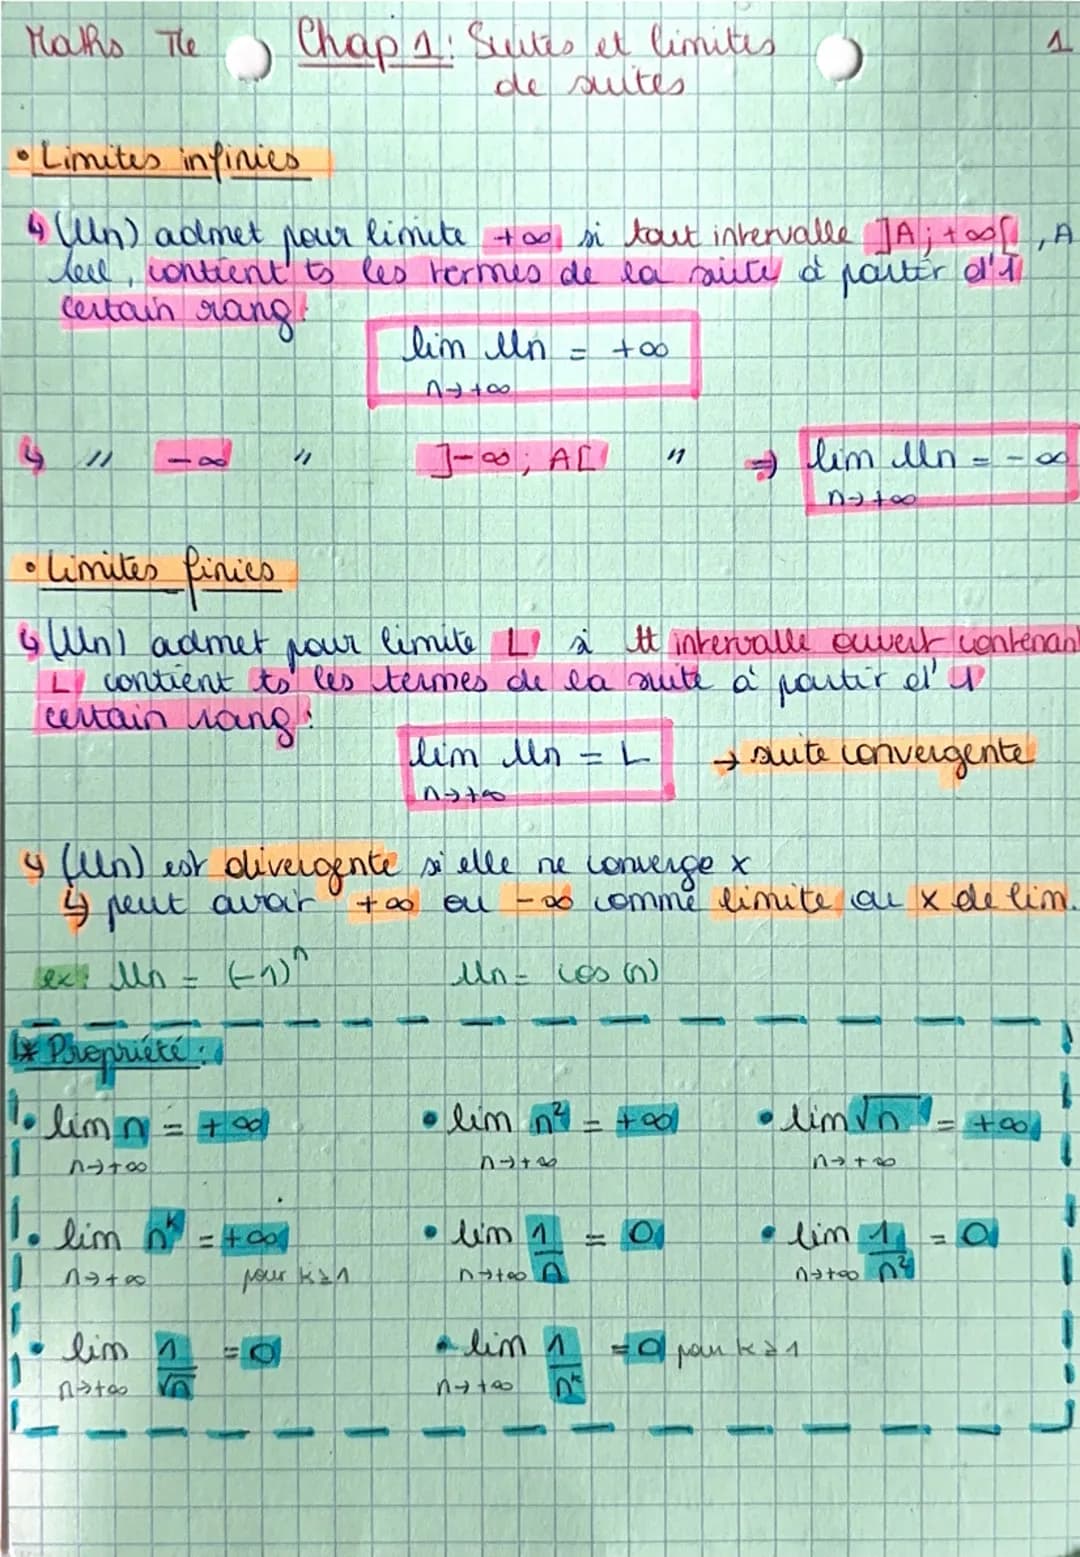 Maths Tle Chap 1: Suites et limites 1
de suites
• Limites infinies
↳ (Un) admet pour limite +∞ si tout intervalle ]A; +∞[, A
réel, contient ts les termes de la suite à partir d'1
certain rang:
lim Un = +∞
n→+∞
↳ " -∞ " ]-∞; A[ " ⇒ lim Un = -∞
n→+∞
• Limites finies
↳ (Un) admet pour limite L si tt intervalle ouvert contenant
L contient ts les termes de la suite à partir d'1
certain rang:
lim Un = L → suite convergente
n→+∞
↳ (Un) est divergente si elle ne converge x
↳ peut avoir +∞ ou -∞ comme limite ou x de lim.
ex: Un = (-1)ⁿ Un = cos (n)
* Propriété:
• lim n = +∞ • lim n² = +∞ • lim √n = +∞
n→+∞ n→+∞ n→+∞
• lim nᵏ = +∞ • lim 1/n = 0 • lim 1/n² = 0
n→+∞ pour k≥1 n→+∞ n→+∞
• lim 1/√n = 0 • lim 1/nᵏ = 0 pour k≥1
n→+∞ n→+∞